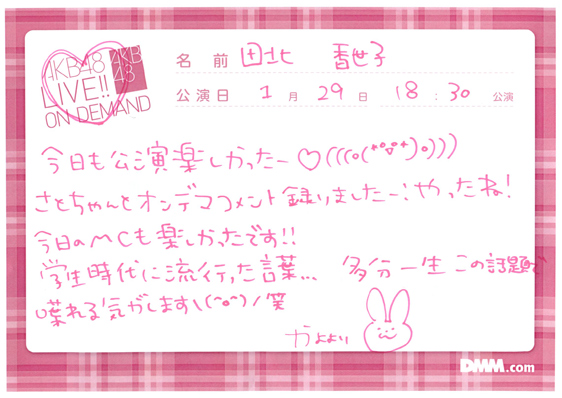 AKB48
LIVE!!
ON DEMAND
AKB
48
名前 田北 香世子
公演日 1月 29日 18:30 公演
今日も公演楽しかったー♡(((o(*°▽°*)o)))
さとちゃんとオンデマコメント録りましたー:やったね!
今日のMCも楽しかったです!!
学生時代に流行った言葉... 多分一生この話題で
喋れる気がします\(^o^)/笑
かよよい
DMM.com